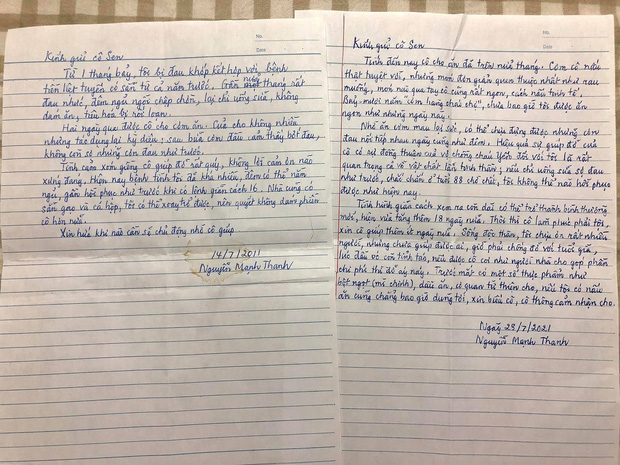 No.
Date
Kính gửi cô Sen
Từ 1 tháng bảy, tôi bị đau khớp kết hợp với bệnh
tiền liệt tuyến có sẵn từ cả năm trước. Gần nửa tháng rất
đau nhức, đêm ngủ ngồi chập chờn, lại chỉ uống sữa, không
dám ăn, tiêu hoá bị rối loạn.
Hai ngày qua được cô cho cơm ăn. Của cho không nhiều
nhưng tác dụng lại kỳ diệu: sau bữa cơm đầu cảm thấy bớt đau,
không còn sợ những cơn đau như trước.
Tình cảm xóm giềng cô giúp đỡ rất quý, không lời cảm ơn nào
xứng đáng. Hiện nay bệnh tình tôi đã khá nhiều, đêm có thể nằm
ngủ, gần hồi phục như trước khi có lệnh giãn cách 16. Nhà cũng có
sẵn gạo và cá hộp, tôi có thể xoay trở được, nên quyết không dám phiền
cô hơn nữa.
Xin hứa khi nào cần sẽ chủ động nhờ cô giúp
14/7/2011
Nguyễn Mạnh Thanh
No.
Date
Kính gửi cô Sen
Tính đến nay cô cho ăn đã trên nửa tháng. Cơm cô nấu
thật tuyệt vời, những món đơn giản quen thuộc nhất như rau
muống, mới nói qua tay cô cũng rất ngon, cách nấu tinh tế.
Bảy mươi năm cơm hàng cháo chợ, chưa bao giờ tôi được ăn
ngon như những ngày này.
Nhờ ăn cơm mau lại sức, có thể chịu đựng được những cơn
đau nối tiếp nhau ngày cũng như đêm. Hiệu quả sự giúp đỡ của
cô có sự đồng thuận của vợ chồng cháu Yến đối với tôi là rất
quan trọng cả về vật chất lẫn tinh thần; nếu chỉ uống sữa sợ đau
như trước, chắc chắn ở tuổi 88 chỉ chết, tôi không thể nào hồi phục
được như hiện nay.
Tình hình giãn cách xem ra còn dài có thể trở thành bình thường
mới, hiện vừa tăng thêm 18 ngày nữa. Thôi thì cô làm phước phải tội,
xin cô giúp thêm ít ngày nữa. Sống độc thân, tôi chịu ơn rất nhiều
người, nhưng chưa giúp được ai, giờ phải chống đỡ với tuổi già
lúc đầu vô còn tỉnh táo, nếu được cô coi như người nhà cho góp phần
chi phí thì đỡ áy náy. Trước mắt có một số thực phẩm như
bột ngọt (mì chính), dầu ăn, cơ quan từ thiện cho, nếu tôi có nấu
ăn cũng chẳng bao giờ dùng tới, xin biếu cô, cô thông cảm nhận cho.
Ngày 28/7/2021
Nguyễn Mạnh Thanh